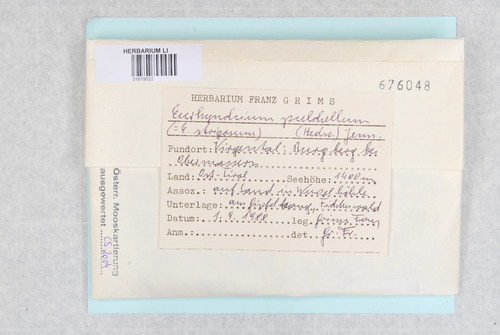 HERBARIUM LI
01619522
676048
HERBARIUM FRANZ GRIMS
Eurhynchium pulchellum
(= E. strigosum) (Hedw.) Jenn.
Fundort: Virgental: Burgberg bei
Obermauern
Land: Ost-Tirol Seehöhe: 1400 m
Assoz.: auf Sand in Wurzelhöhle
Unterlage: am
Datum: 1. 9. 1980 leg. Grims Franz
Anm.: det. Gr. Fr.
Österr. Mooskartierung
ausgewertet CS 2004